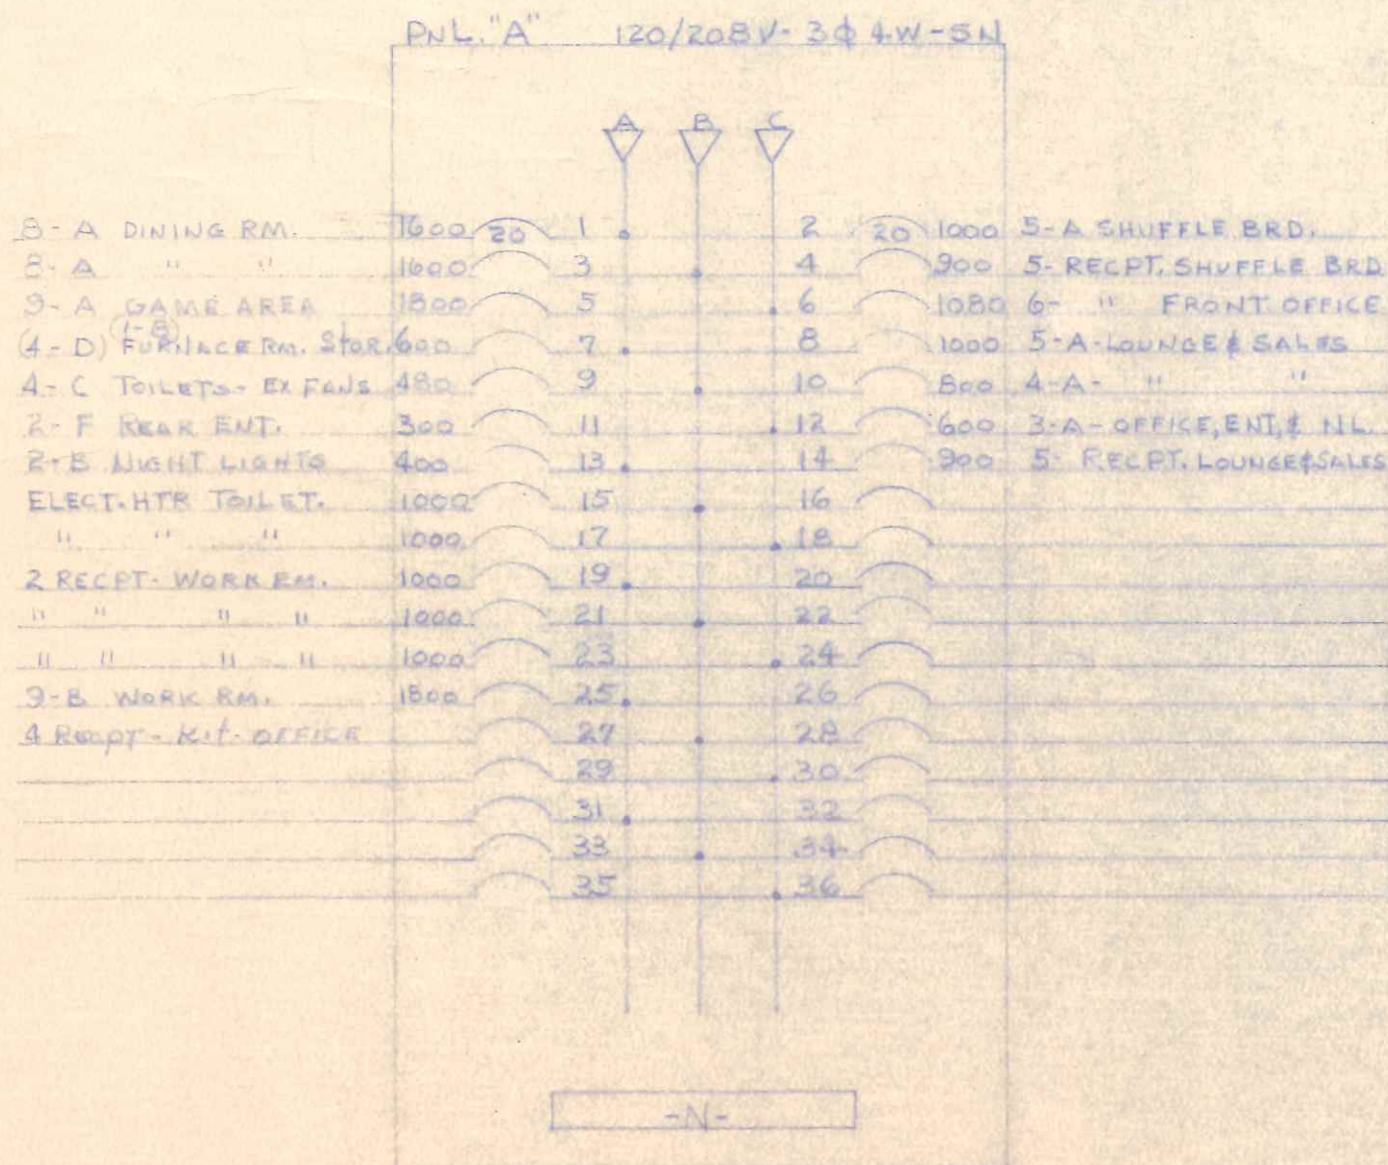 PNL. "A" 120/208V- 3ϕ 4-W-SN
A B C
8-A DINING RM. 1600 20 1 2 20 1000 5-A SHUFFLE BRD.
8-A " " 1600 3 4 900 5-RECPT. SHUFFLE BRD
9-A GAME AREA 1800 5 6 1080 6- " FRONT OFFICE
(1-B)
(4-D) FURNACE RM. Stor. 600 7 8 1000 5-A-LOUNGE & SALES
4-C TOILETS- EX FANS 480 9 10 800 4-A- " "
2-F REAR ENT. 300 11 12 600 3-A-OFFICE, ENT, & NL.
2-B NIGHT LIGHTS 400 13 14 900 5- RECPT. LOUNGE & SALES
ELECT. HTR TOILET. 1000 15 16
" " " 1000 17 18
2 RECPT- WORK RM. 1000 19 20
" " " " 1000 21 22
" " " " 1000 23 24
9-B WORK RM. 1800 25 26
4 Recpt - Kit- OFFICE 27 28
29 30
31 32
33 34
35 36
-N-